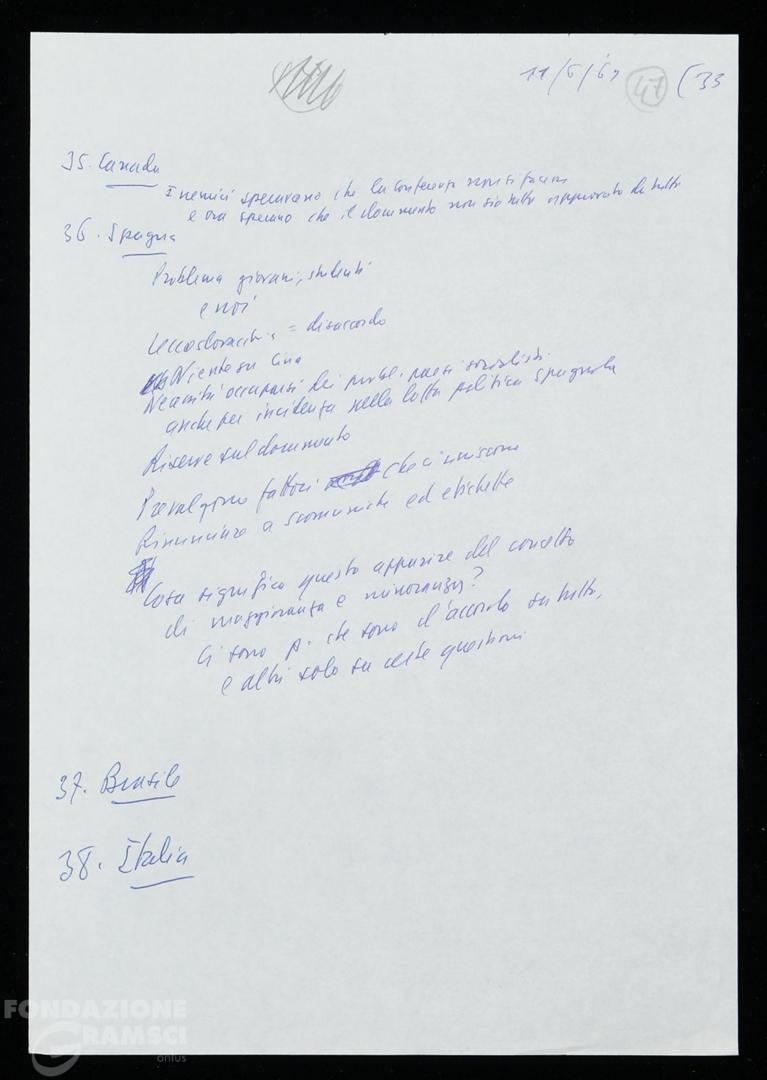 11/6/69 47 (33
35. Canada
I nemici speravano che la conferenza non si facesse
e ora sperano che il documento non sia tutto approvato da tutti
36. Spagna
Problema giovani, studenti
e noi
Cecoslovacchia = disaccordo
Niente su Cina
Necessità occuparsi dei probl. paesi socialisti
anche per incidenza nella lotta politica spagnola
Riserve sul documento
Prevalgono fattori che ci uniscono
Rinunciare a scomuniche ed etichette
Cosa significa questo apparire del concetto
di maggioranza e minoranza?
Ci sono p. che sono d'accordo su tutto,
e altri solo su certe questioni
37. Brasile
38. Italia
FONDAZIONE
GRAMSCI
onlus